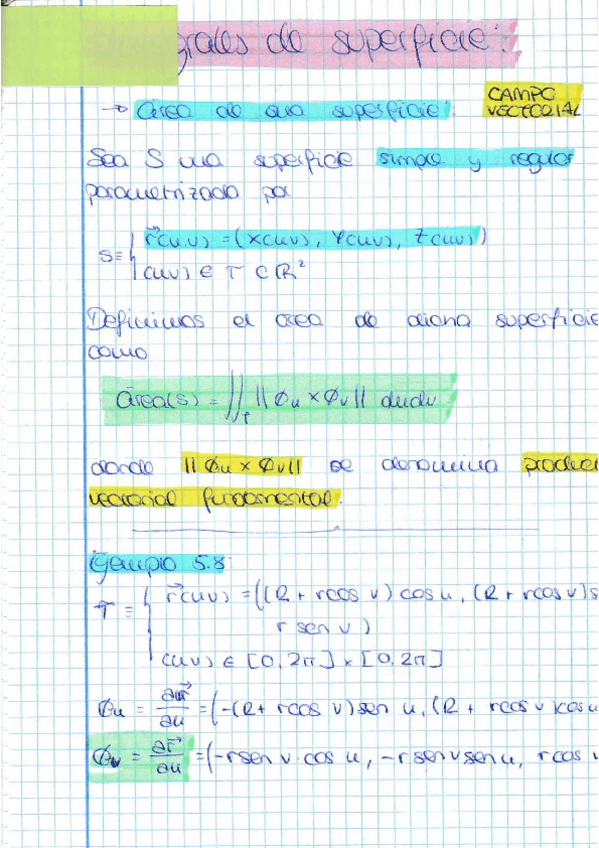 grales de superficie:
→ Área de una superficie:
CAMPO VECTORIAL
Sea S una superficie simple y regular
parametrizada por
S ≡ { r⃗(u,v) = (x(u,v), y(u,v), z(u,v))
(u,v) ∈ T ⊂ ℝ²
Definimos el area de dicha superficie
como
Área(S) = ∬_T ||φu × φv|| dudv.
donde ||φu × φv|| se denomina produc
vectorial fundamental.
Ejemplo 5.8
T ≡ { r⃗(u,v) = ((R + rcos v) cos u, (R + rcos v) s
r sen v)
(u,v) ∈ [0, 2π] × [0, 2π]
φu = ∂r⃗/∂u = (-(R + rcos v) sen u, (R + rcos v) cos u
φv = ∂r⃗/∂u = (-rsen v · cos u, -rsen v sen u, rcos v